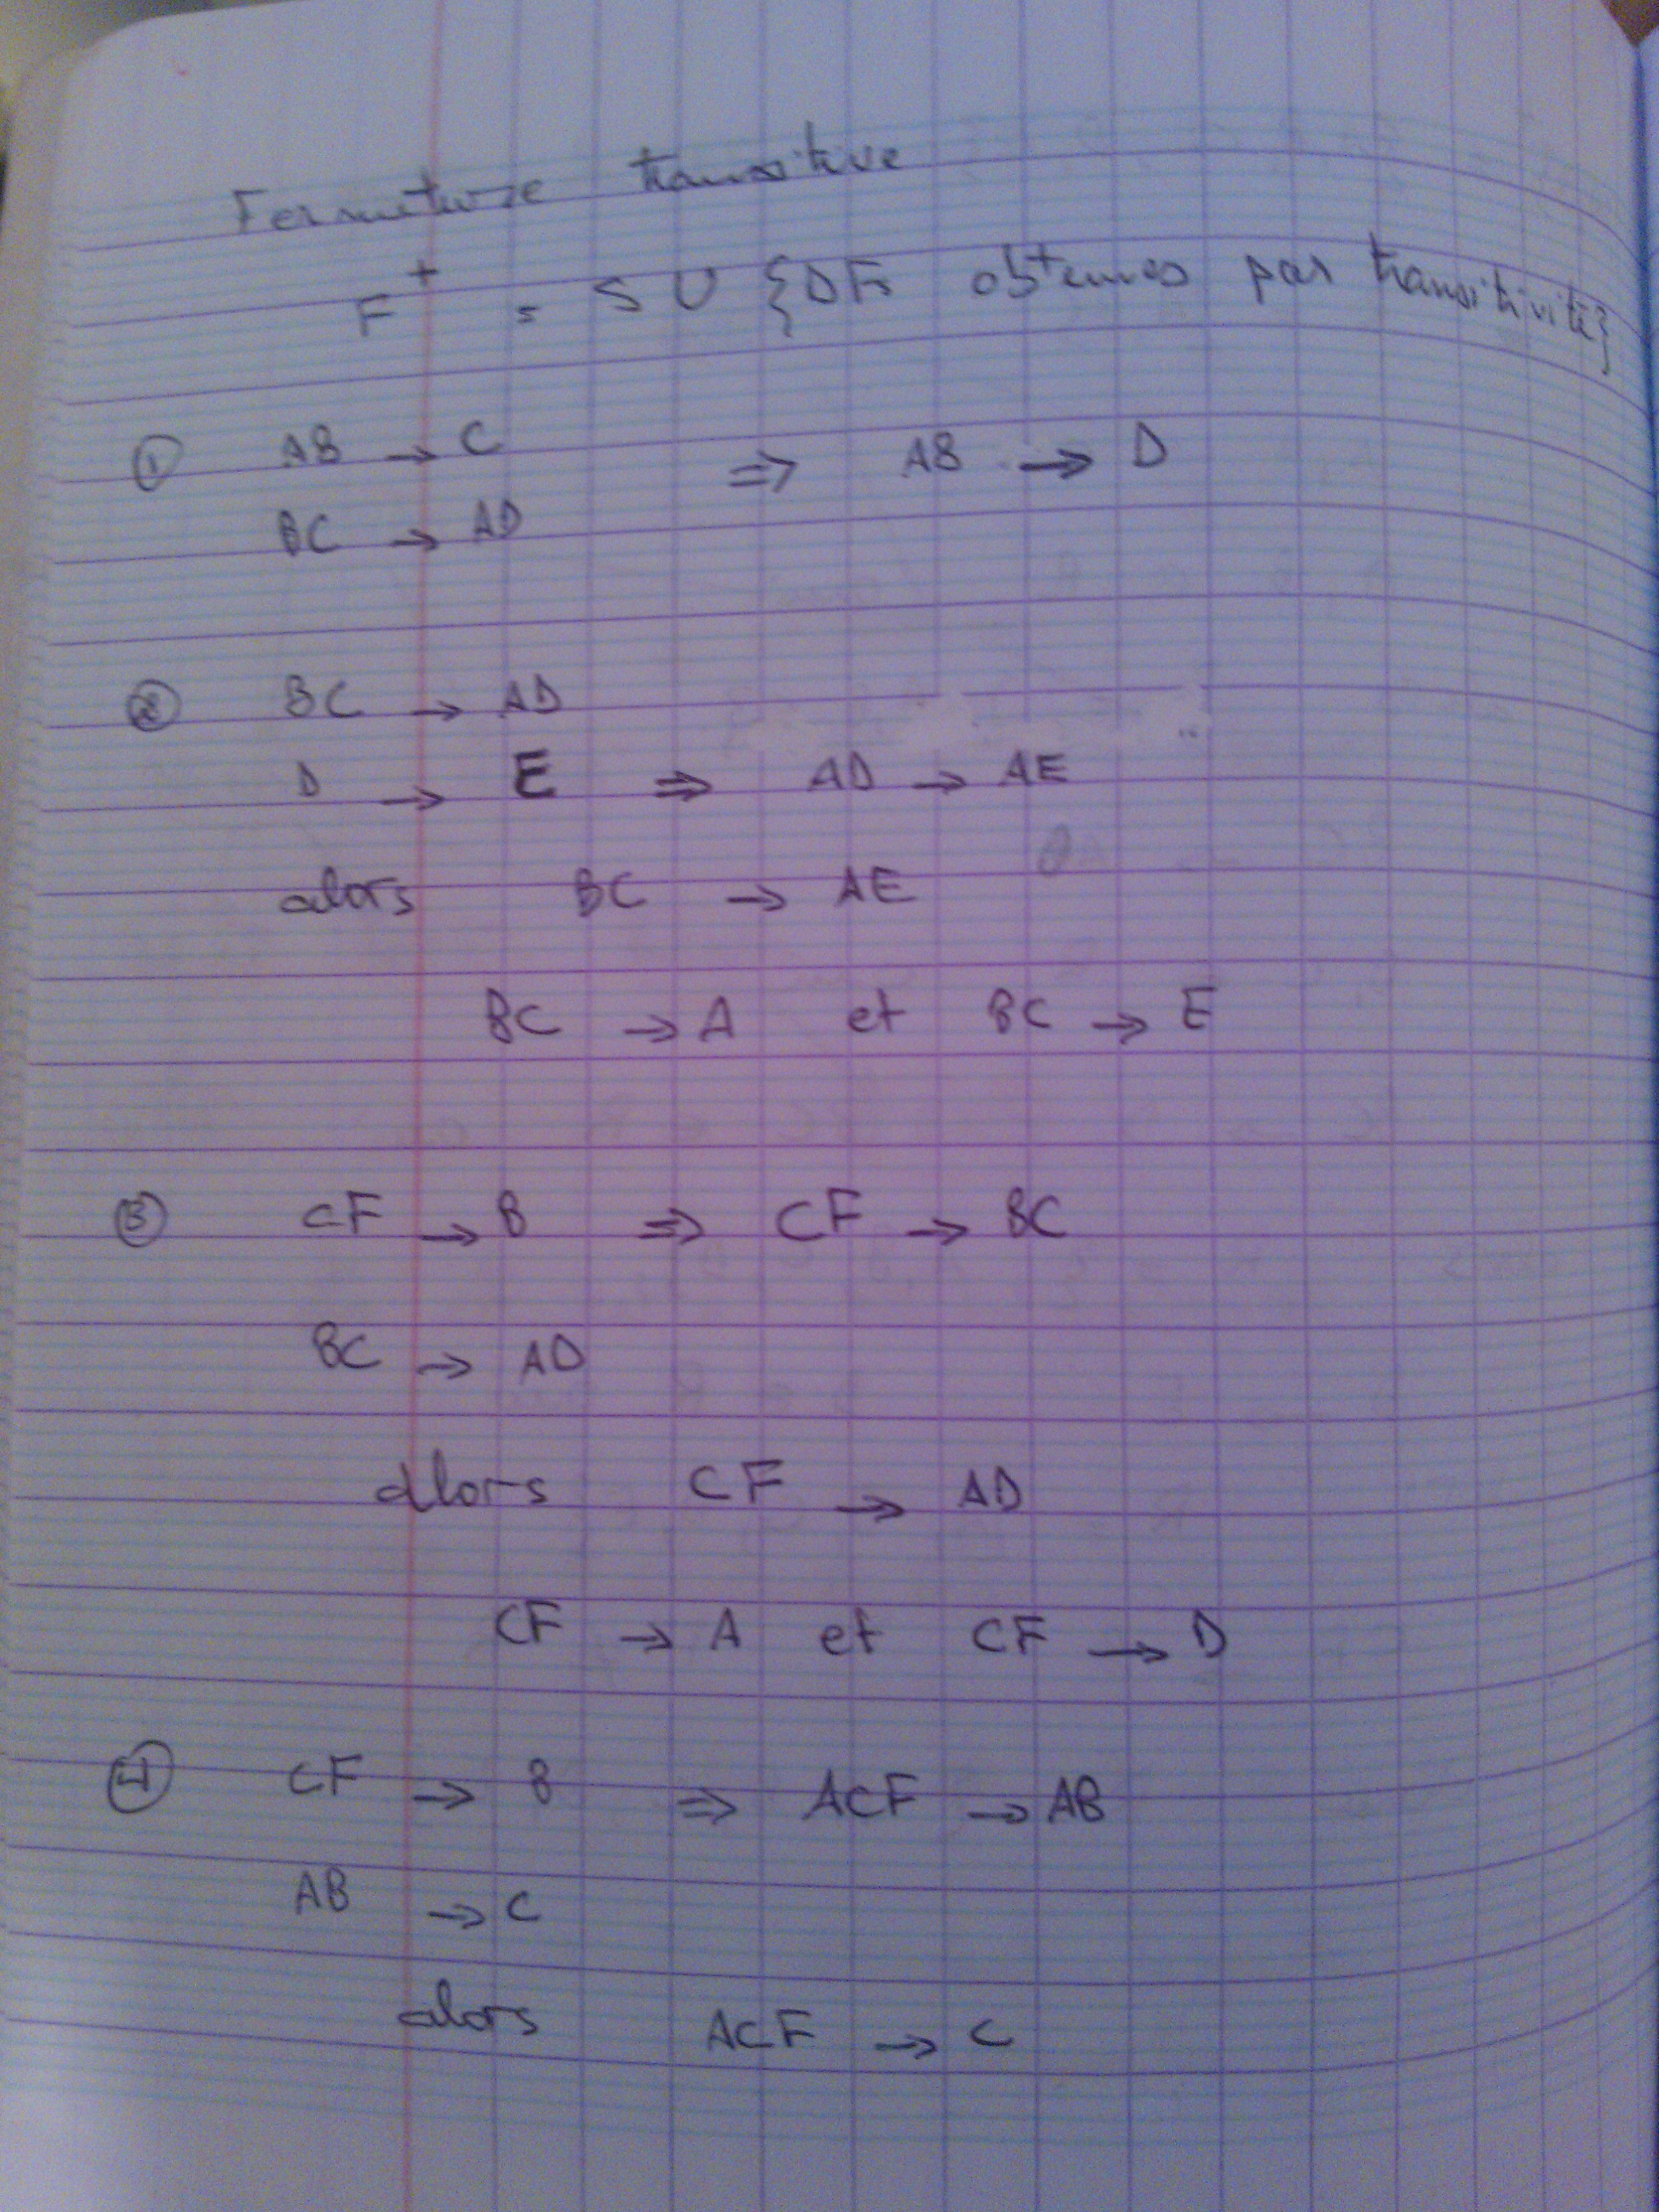 Fermeture transitive
F⁺ = S U {DFs obtenues par transitivité}
① AB → C ⇒ AB → D
BC → AD
② BC → AD
D → E ⇒ AD → AE
alors BC → AE
BC → A et BC → E
③ CF → B ⇒ CF → BC
BC → AD
alors CF → AD
CF → A et CF → D
④ CF → B ⇒ ACF → AB
AB → C
alors ACF → C